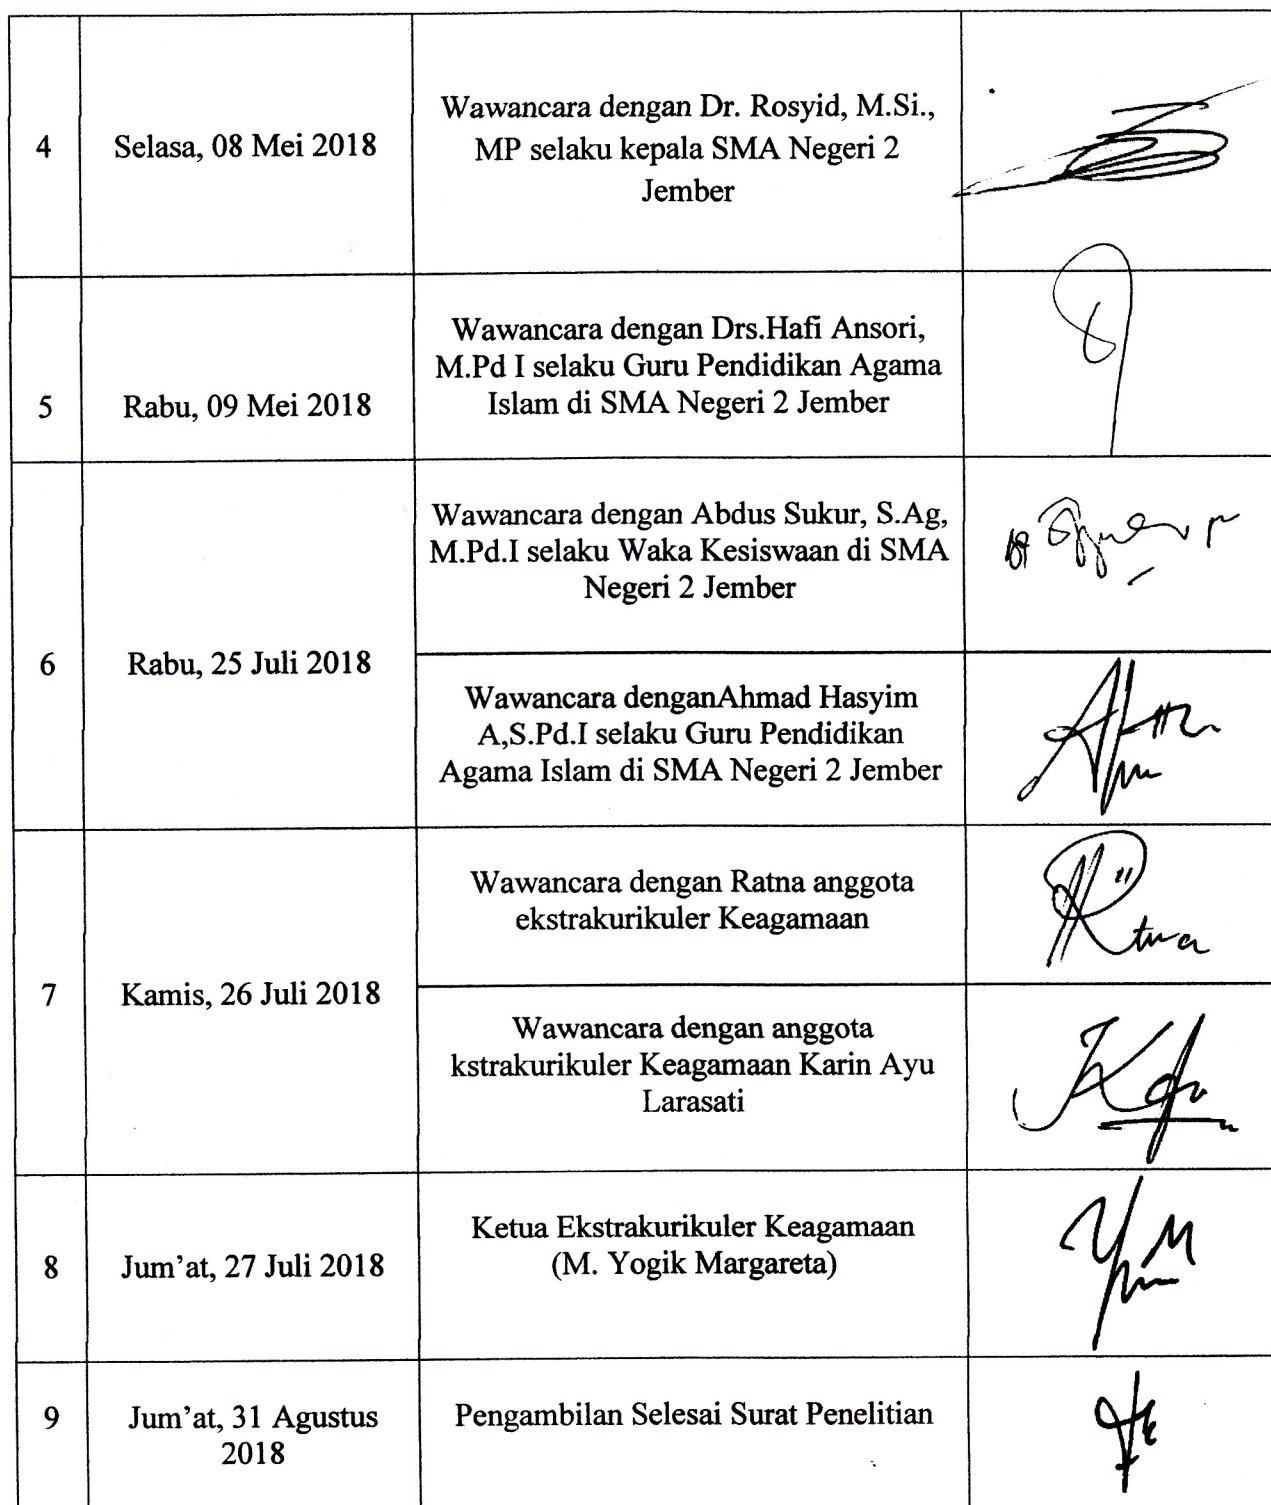 4
Selasa, 08 Mei 2018
Wawancara dengan Dr. Rosyid, M.Si.,
MP selaku kepala SMA Negeri 2
Jember
5
Rabu, 09 Mei 2018
Wawancara dengan Drs.Hafi Ansori,
M.Pd I selaku Guru Pendidikan Agama
Islam di SMA Negeri 2 Jember
6
Rabu, 25 Juli 2018
Wawancara dengan Abdus Sukur, S.Ag,
M.Pd.I selaku Waka Kesiswaan di SMA
Negeri 2 Jember
Wawancara denganAhmad Hasyim
A,S.Pd.I selaku Guru Pendidikan
Agama Islam di SMA Negeri 2 Jember
7
Kamis, 26 Juli 2018
Wawancara dengan Ratna anggota
ekstrakurikuler Keagamaan
Wawancara dengan anggota
kstrakurikuler Keagamaan Karin Ayu
Larasati
8
Jum'at, 27 Juli 2018
Ketua Ekstrakurikuler Keagamaan
(M. Yogik Margareta)
9
Jum'at, 31 Agustus
2018
Pengambilan Selesai Surat Penelitian